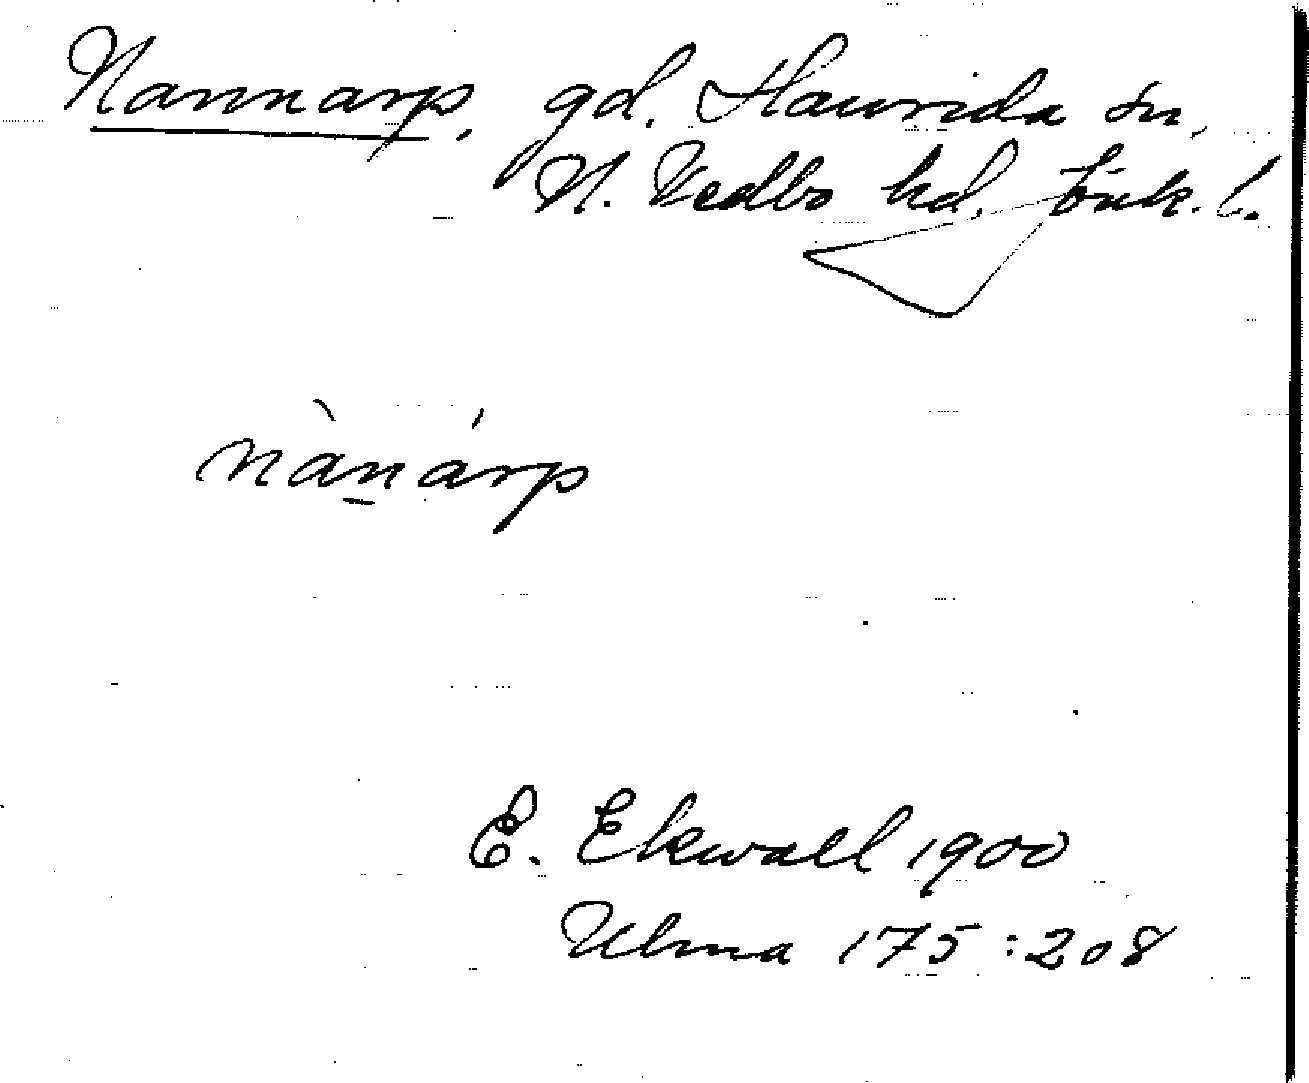 Nannarp, gd. Haurida sn,
N. Vedbo hd, Jönk. l.
nànárp
E. Ekwall 1900
Ulma 175:208